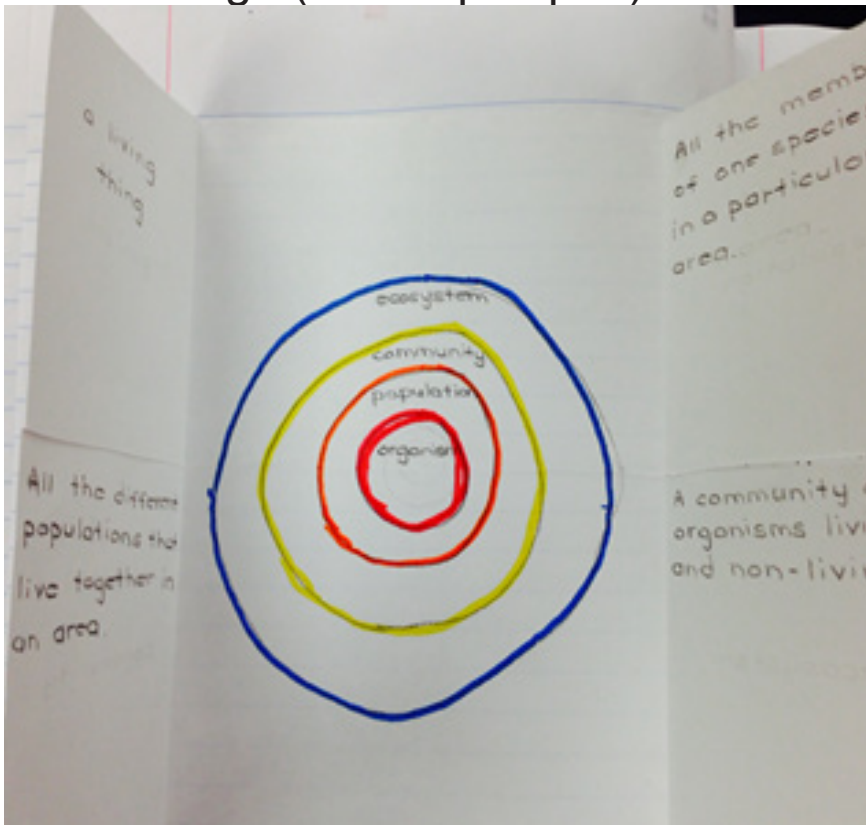 a living
thing
All the
of one
in a
area.
ecosystem
community
population
organism
All the different
populations that
live together in
an area.
A community
organisms
and non-